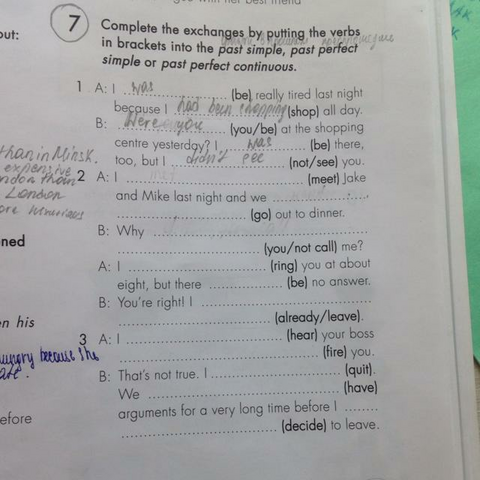 out:
7 Complete the exchanges by putting the verbs
in brackets into the past simple, past perfect
simple or past perfect continuous.
1 A: I was (be) really tired last night
because I had been shopping (shop) all day.
B: Were you (you/be) at the shopping
centre yesterday? I was (be) there,
too, but I didn't see (not/see) you.
than in Minsk.
expensive
London
2 A: I (meet) Jake
and Mike last night and we
(go) out to dinner.
B: Why
(you/not call) me?
A: I (ring) you at about
eight, but there (be) no answer.
B: You're right! I
(already/leave).
3 A: I (hear) your boss
(fire) you.
B: That's not true. I (quit).
We (have)
arguments for a very long time before I
(decide) to leave.
ned
n his
hungry because she
efore